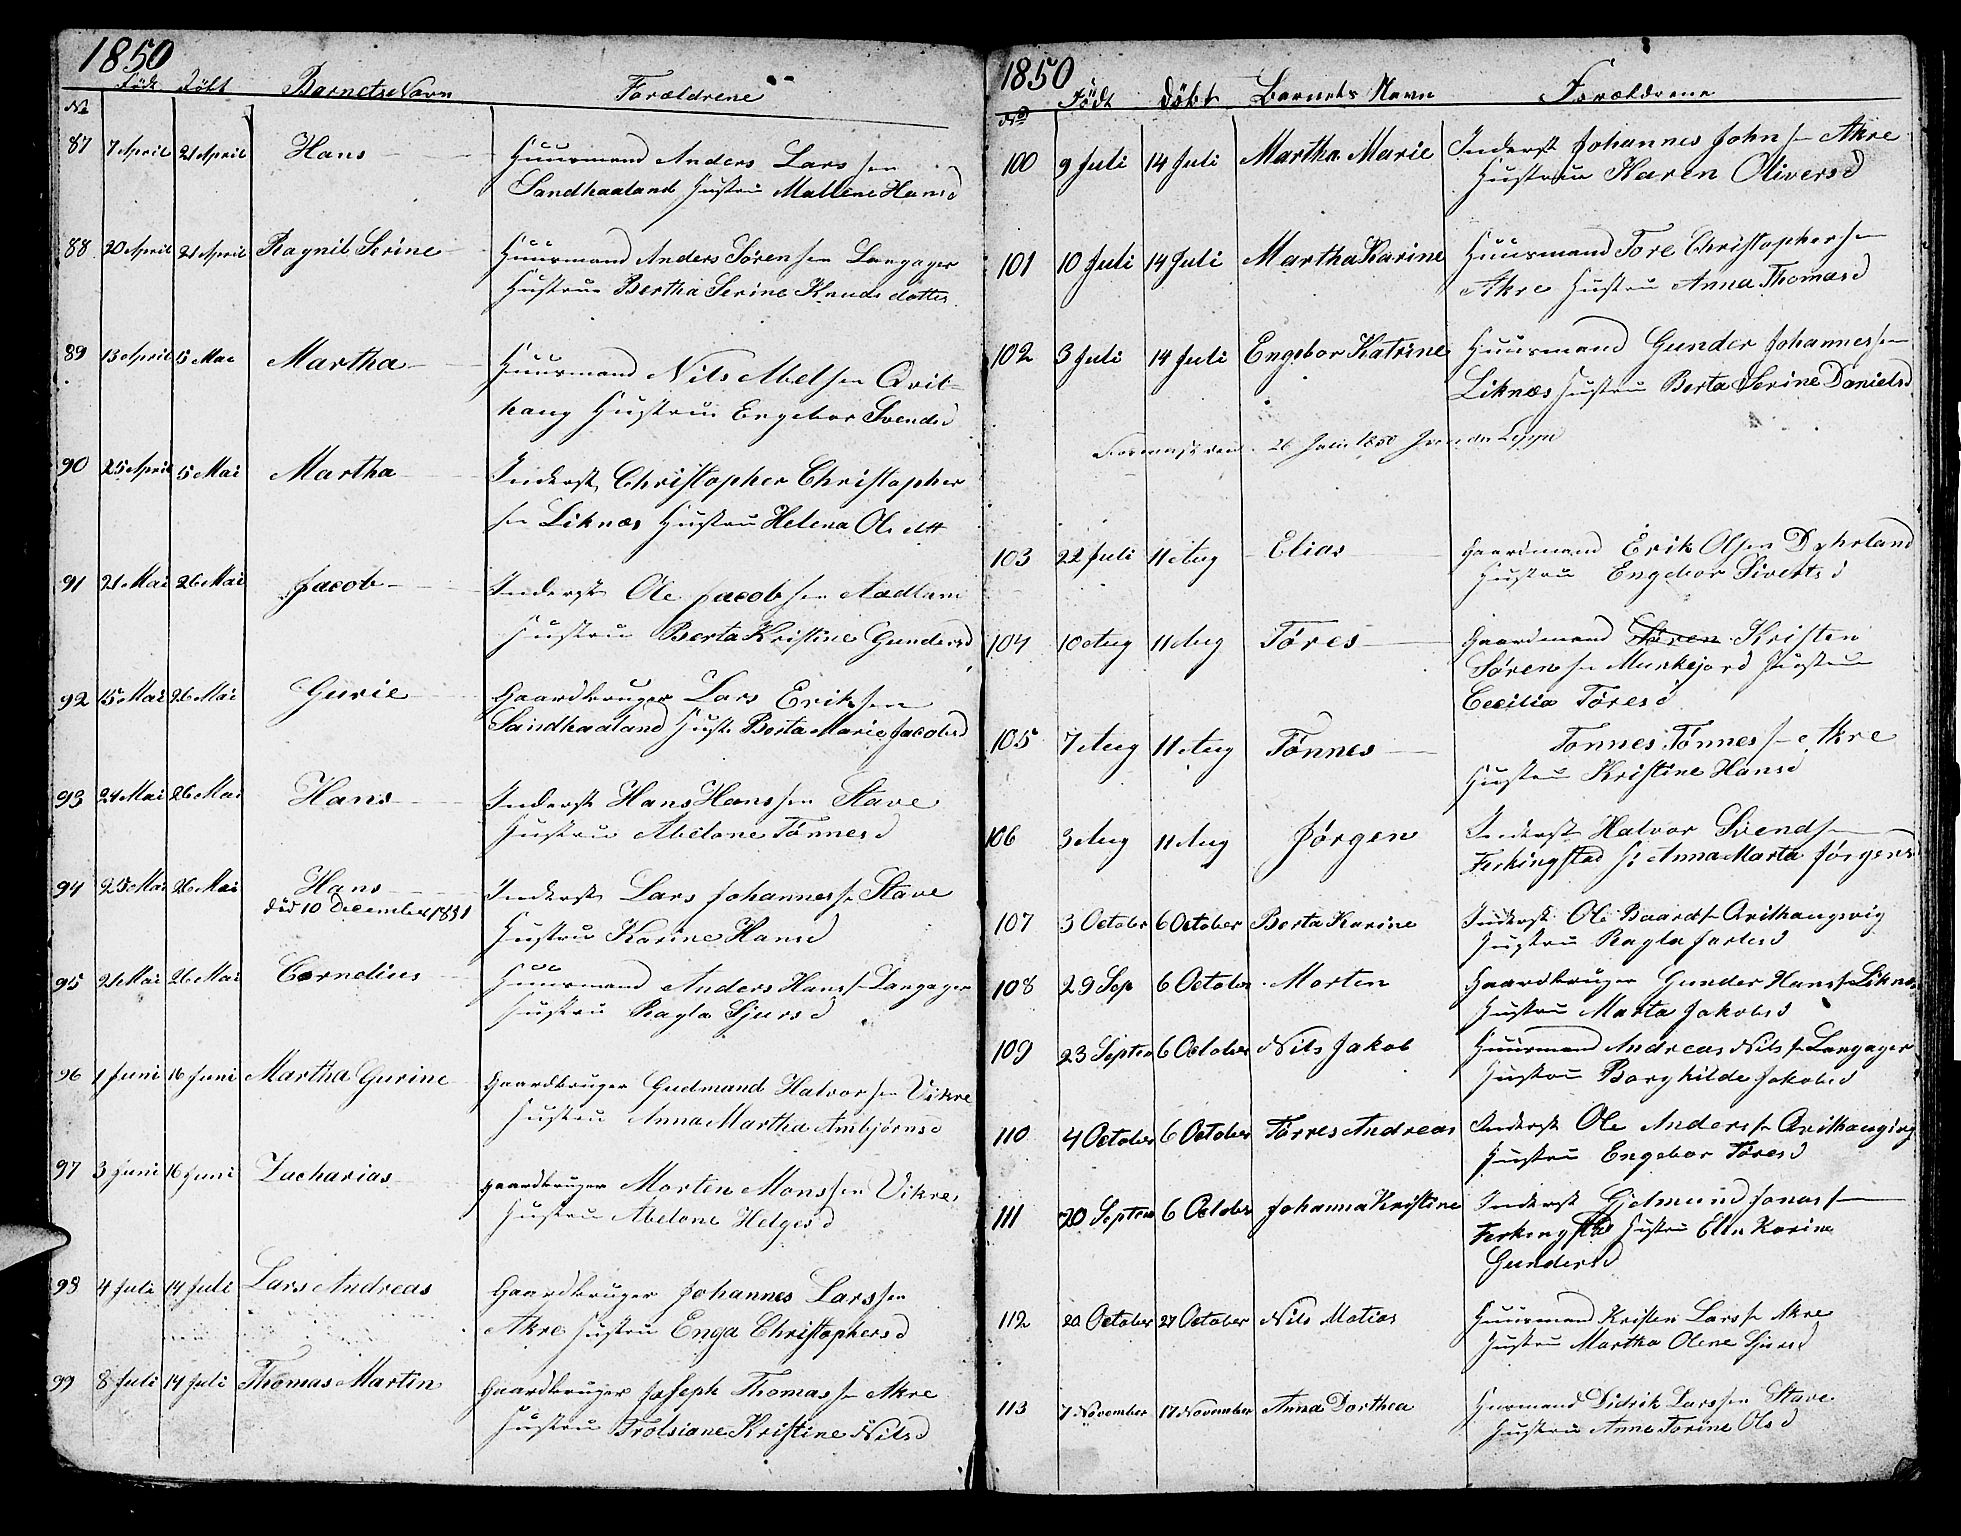 1850
Nº Født Døbt Barnets Navn Forældrene
87 7 April 21 April Hans Huusmand Anders Larssen
Sandhaaland Hustru Mallene Hansd
88 20 April 21 April Ragnil Serine Huusmand Anders Sørensen Langager
Hustrue Bertha Serine Knudsdotter
89 13 April 5 Mai Martha Huusmand Nils Abelsen Qvil-
haug Hustrue Engebor Svendsd
90 25 April 5 Mai Martha Inderst Christopher Christopher
sen Liknæs Hustru Helena Ole dtt
91 21 Mai 26 Mai Jacob Inderst Ole Jacobsen Aadland
Hustru Berta Kristine Gundersd
92 15 Mai 26 Mai Gurie Gaardbruger Lars Eriksen
Sandhaaland Hust Berta Marie Jacobsd
93 24 Mai 26 Mai Hans Inderst Hans Hanssen Stave
Hustru Abelone Tønnesd
94 25 Mai 26 Mai Hans Inderst Lars Johannessen Stave
død 10 December 1851
Hustru Karine Hansd
95 21 Mai 26 Mai Cornelius Huusmand Anders Hanssen Langager
Hustru Ragla Sjursd
96 1 Juni 16 Juni Martha Gurine Gaardbruger Gudmand Halvorsen Vikre
Hustru Anna Martha Ambjørnsd
97 3 Juni 16 Juni Zacharias gaardbruger Morten Monssen Vikre
Hustru Abelone Helgesd
98 4 Juli 14 Juli Lars Andreas Gaardbruger Johannes Larssen
Akre Hustru Enga Christophersd
99 8 Juli 14 Juli Thomas Martin Gaardbruger Joseph Thomassen Akre
Hustru Trolsiane Kristine Nilsd
1850
Nº Født døbt Barnets Navn Forældrene
100 9 Juli 14 Juli Martha Marie Inderst Johannes Johnsen Akre
Hustrue Karen Oliversd
101 10 Juli 14 Juli Martha Karine Huusmand Tore Christophersen
Akre Hustru Anna Thomasd
102 3 Juli 14 Juli Engebor Katrine Huusmand Gunder Johannessen
Liknæs Hustru Berta Serine Danielsd
den 26 Juli 1850
103 22 Juli 11 Aug Elias Gaardmand Erik Olsen Dyhrland
Hustru Engebor Sivertsd
104 10 Aug 11 Aug Tøres Gaardmand Søren Kristen
Sørensen Munkejord Hustru
Cecilia Tøresd
105 7 Aug 11 Aug Tønnes Tønnes Tønnessen Akre
Hustru Kristine Hansd
106 3 Aug 11 Aug Jørgen Inderst Halvor Svendsen
Ferkingstad H: Anna Marta Jørgensd
107 3 October 6 October Berta Karine Inderst Ole Baardsen Qvilhaugsvig
Hustru Ragla Jarlesd
108 29 Sep 6 October Morten Gaardbruger Gunder Hanssen Liknæs
Hustru Marta Jakobsd
109 23 Septem 6 October Nils Jakob Huusmand Andreas Nilssen Langager
Hustru Borghilde Jakobsd
110 4 October 6 October Torres Andreas Inderst Ole Anderssen Qvilhaugvig
Hustru Engebor Tøresd
111 20 Septem 6 October Johanna Kristine Inderst Gjelmund Jonassen
Ferkingstad Hustru Elen Karine
Gundersd
112 20 October 27 October Nils Matias Huusmand Kristen Larssen Akre
Hustru Martha Olene Sjursd
113 7 November 17 November Anna Dorthea Huusmand Didrik Larssen Stave
Hustru Anne Torine Olsd